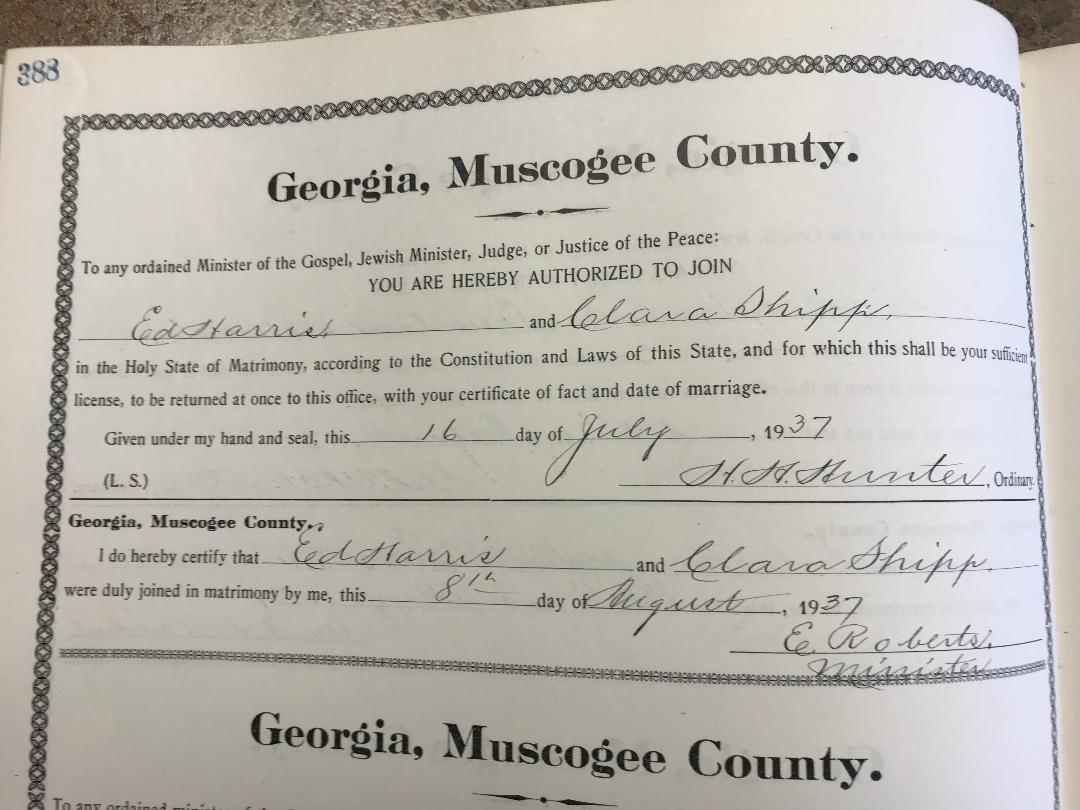 388
Georgia, Muscogee County.
To any ordained Minister of the Gospel, Jewish Minister, Judge, or Justice of the Peace:
YOU ARE HEREBY AUTHORIZED TO JOIN
Ed Harris and Clara Shipp.
in the Holy State of Matrimony, according to the Constitution and Laws of this State, and for which this shall be your sufficient
license, to be returned at once to this office, with your certificate of fact and date of marriage.
Given under my hand and seal, this 16 day of July, 1937
(L. S.) H. H. Hunter, Ordinary.
Georgia, Muscogee County.,
I do hereby certify that Ed Harris and Clara Shipp.
were duly joined in matrimony by me, this 8th day of August, 1937
E. Roberts.
Minister
Georgia, Muscogee County.
To any ordained minister of the